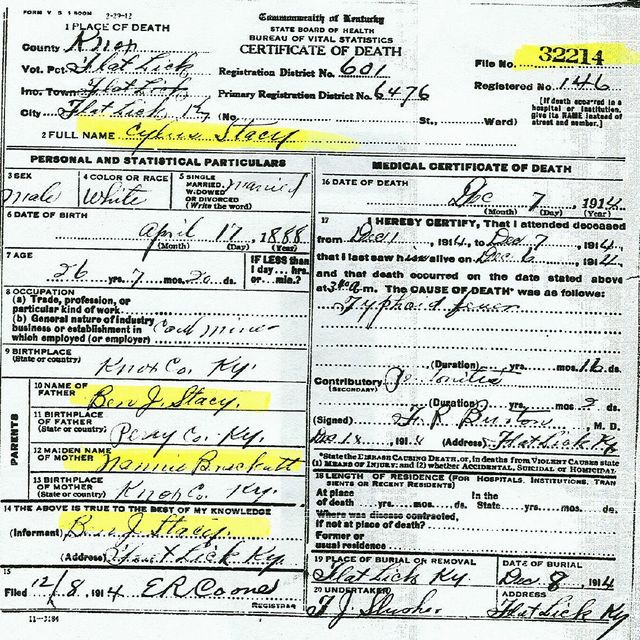 FORM V S 1 500M 2-29-12
Commonwealth of Kentucky
STATE BOARD OF HEALTH
BUREAU OF VITAL STATISTICS
CERTIFICATE OF DEATH
1 PLACE OF DEATH
County Knox
Vot. Pct. Flat Lick
Inc. Town Flat Lick
City Flat Lick, Ky (No. St., Ward)
Registration District No. 601
Primary Registration District No. 6476
File No. 32214
Registered No. 146
[If death occurred in a hospital or institution, give its NAME instead of street and number.]
2 FULL NAME Cyrus Stacy
PERSONAL AND STATISTICAL PARTICULARS
3 SEX Male
4 COLOR OR RACE White
5 SINGLE, MARRIED, WIDOWED OR DIVORCED (Write the word) Married
6 DATE OF BIRTH April 17, 1888
(Month) (Day) (Year)
7 AGE 26 yrs. 7 mos. 20 ds.
IF LESS than 1 day... hrs. or... min.?
8 OCCUPATION
(a) Trade, profession, or particular kind of work
(b) General nature of industry business or establishment in which employed (or employer) Coal miner
9 BIRTHPLACE (State or country) Knox Co. Ky.
PARENTS
10 NAME OF FATHER Ben J. Stacy.
11 BIRTHPLACE OF FATHER (State or country) Perry Co. Ky.
12 MAIDEN NAME OF MOTHER Nannie
13 BIRTHPLACE OF MOTHER (State or country) Knox Co. Ky.
14 THE ABOVE IS TRUE TO THE BEST OF MY KNOWLEDGE
(Informant) Ben J. Stacy.
(Address) Flat Lick Ky.
15
Filed 12/8, 1914 E R Coones
REGISTRAR
11-3184
MEDICAL CERTIFICATE OF DEATH
16 DATE OF DEATH Dec 7, 1914
(Month) (Day) (Year)
17 I HEREBY CERTIFY, That I attended deceased
from Dec 1, 1914, to Dec 7, 1914
that I last saw him alive on Dec 6, 1914
and that death occurred on the date stated above
at m. The CAUSE OF DEATH* was as follows:
Typhoid fever
(Duration) yrs. mos. 16 ds.
Contributory (SECONDARY)
(Duration) yrs. mos. 2 ds.
(Signed) F. R. Burton, M. D.
1914 (Address) Flat Lick Ky
*State the DISEASE CAUSING DEATH, or, in deaths from VIOLENT CAUSES state
(1) MEANS OF INJURY; and (2) whether ACCIDENTAL, SUICIDAL OR HOMICIDAL
18 LENGTH OF RESIDENCE (FOR HOSPITALS, INSTITUTIONS, TRANSIENTS OR RECENT RESIDENTS)
At place of death yrs. mos. ds. In the State yrs. mos. ds.
Where was disease contracted, if not at place of death?
Former or usual residence
19 PLACE OF BURIAL OR REMOVAL Flat Lick Ky.
DATE OF BURIAL Dec 8, 1914
20 UNDERTAKER T J Slusher
ADDRESS Flat Lick Ky